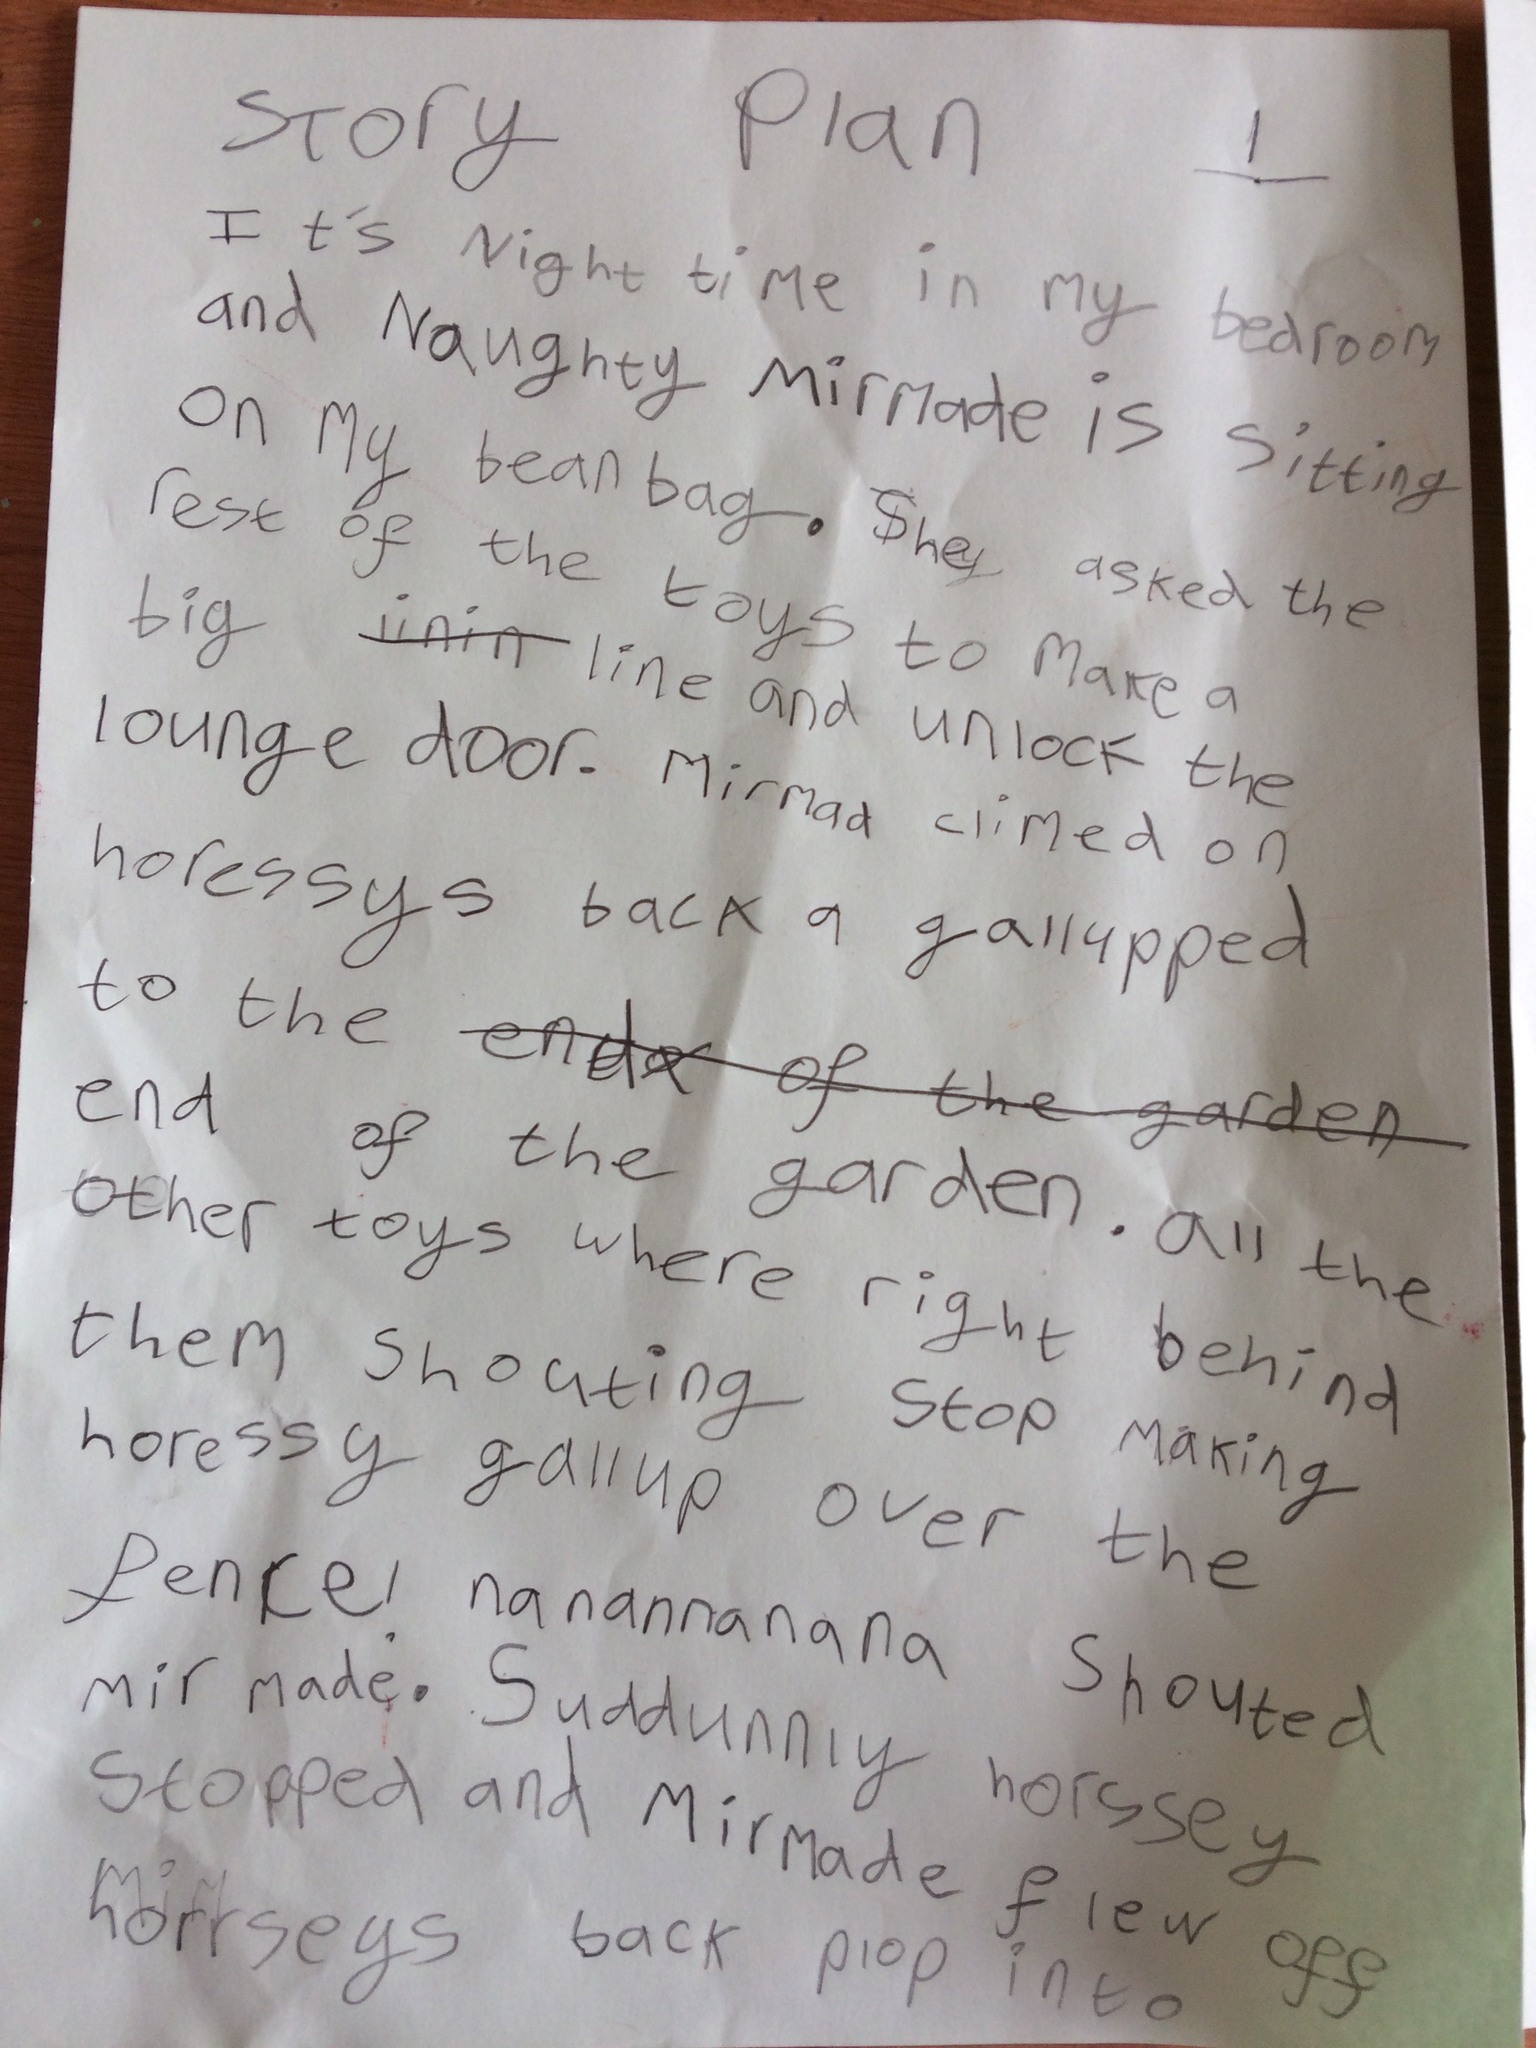 Story Plan 1
It's Night time in my bedroom
and Naughty Mirmade is sitting
on My bean bag. She asked the
rest of the toys to Make a
big iinin line and unlock the
lounge door. Mirmad climed on
horessys back a gallupped
to the end of the garden
end of the garden. all the
other toys where right behind
them shouting stop making
horessy gallup over the
fence! nanannanana shouted
mirmade. Suddunnly horssey
stopped and Mirmade flew off
horrseys back plop into